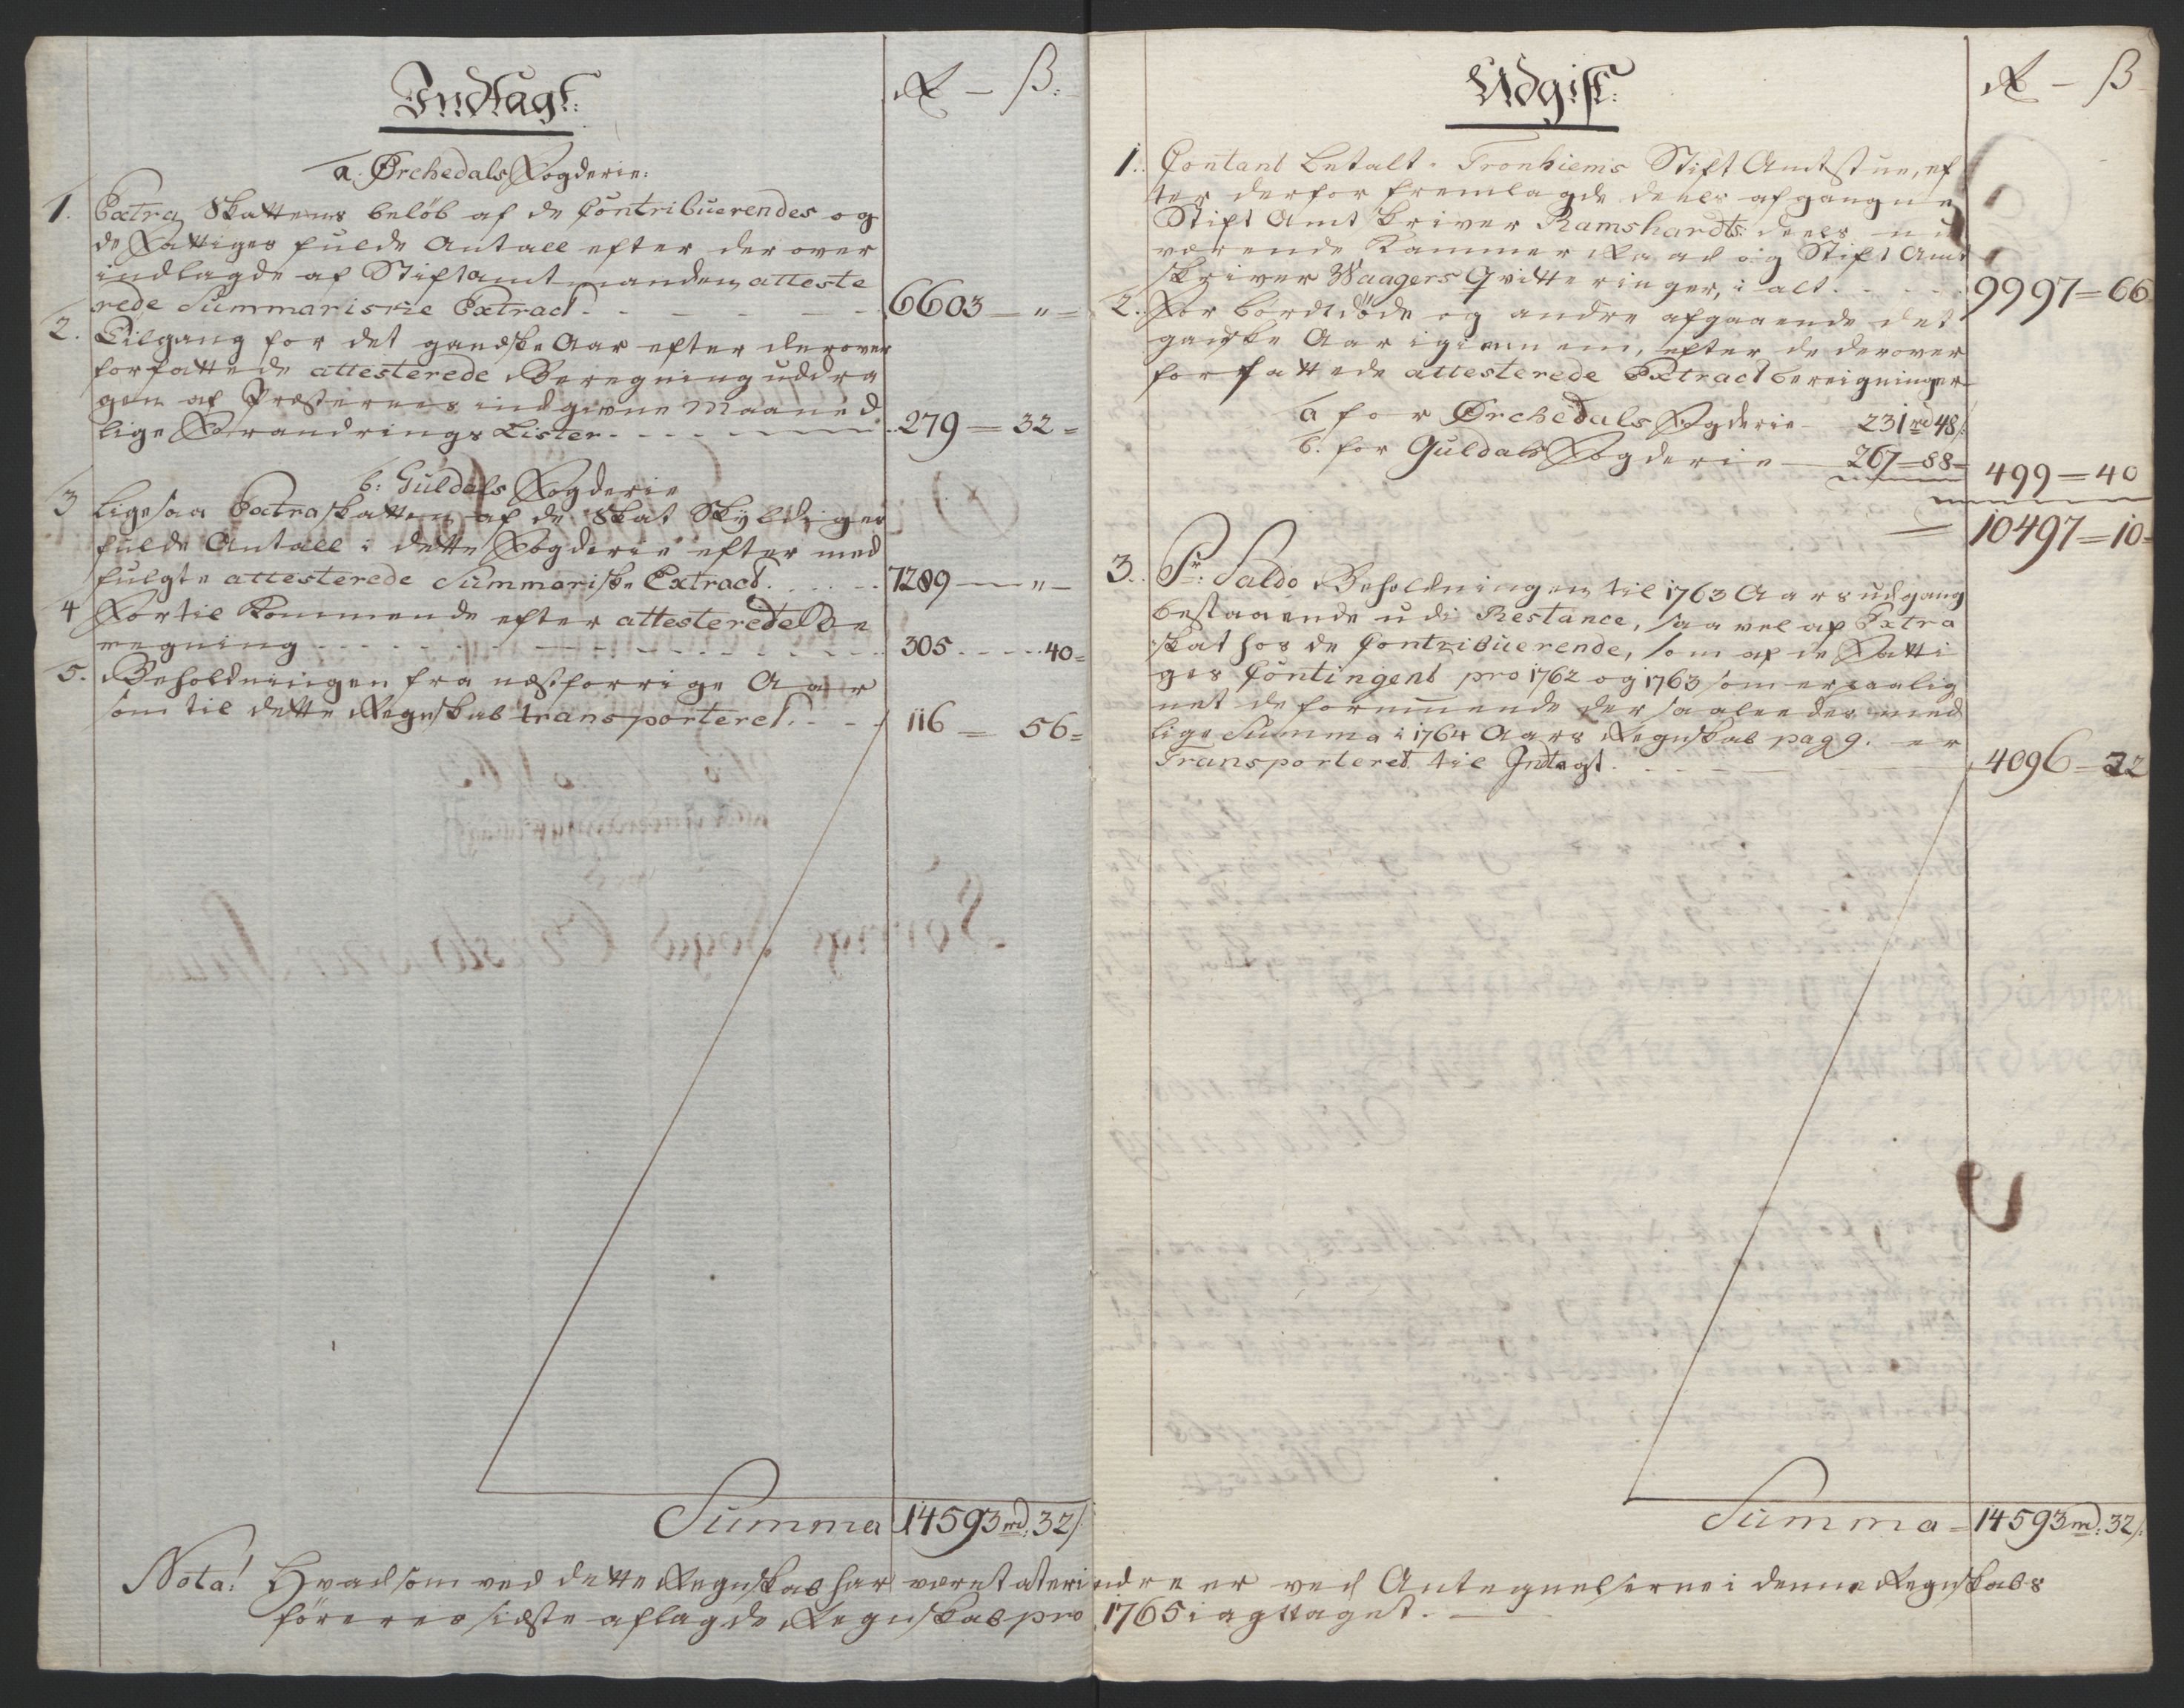 Indtægt:
R – β:
a. Ørchedals Fogderie:
1. Extra Skattens beløb af de Contribuerendes og
de Fattiges fulde Antall efter der over
indlagde af Stiftamtmanden atteste
rede Summariske Extract - - - - - 6603 – " =
2. Tilgang for det gandske Aar efter derover
forfattede attesterede Beregning uddra
gen af Præsternes indgivne Maaned
lige Forandrings Lister - - - - 279 – 32 =
b: Guldals Fogderie
3 Ligesaa Extraskatten af de Skat Skyldiges
fulde Antall i dette Fogderie efter med
fulgte attesterede Summariske Extract. - - - 7289 – " –
4 Fortil kommende efter attesterede Be
regning - - - - - - - - - - 305 - - - 40 =
5. Beholdningen fra næstforrige Aar
som til dette Regnskab transporteret. - - - 116 – 56 =
Summa 14593 rd: 32/
Udgift:
R – β
1. Contant betalt Tronhiems Stift Amtstue, ef
ter derfor fremlagde deels afgangne
Stift Amt skriver Ramshardts deels nu
værende Kammer Raad og Stift Amt
skriver Waagers Qvitteringer, i alt - - - - 9997 = 66
2. For bordtdøde og andre afgaaende det
gandske Aar igiennem, efter de derover
forfattede attesterede Extract bereigninger
a for Ørchedals Fogderie – 231 rd 48/
b. for Guldals Fogderie – 267 = 88 = 499 = 40
10497 = 10 =
3. Pr: Saldo Beholdningen til 1763 Aars udgang
bestaaende udi Restance, saavel af Extra
skat hos de Contribuerende, som af de Fatti
ges Contingent pro 1762 og 1763 som
net de formuende der saaledes med
lige Summa i 1764 Aars Regnskab pag 9. er
Transporteret til Indtegt. - - - 4096 = 22
Summa = 14593 rd: 32/:
Nota! Hvad som ved dette Regnskab har været at erindre er ved Antegnelserne i denne Regnskabs
føreres sidste aflagde Regnskab pro 1765 iagttaget. –